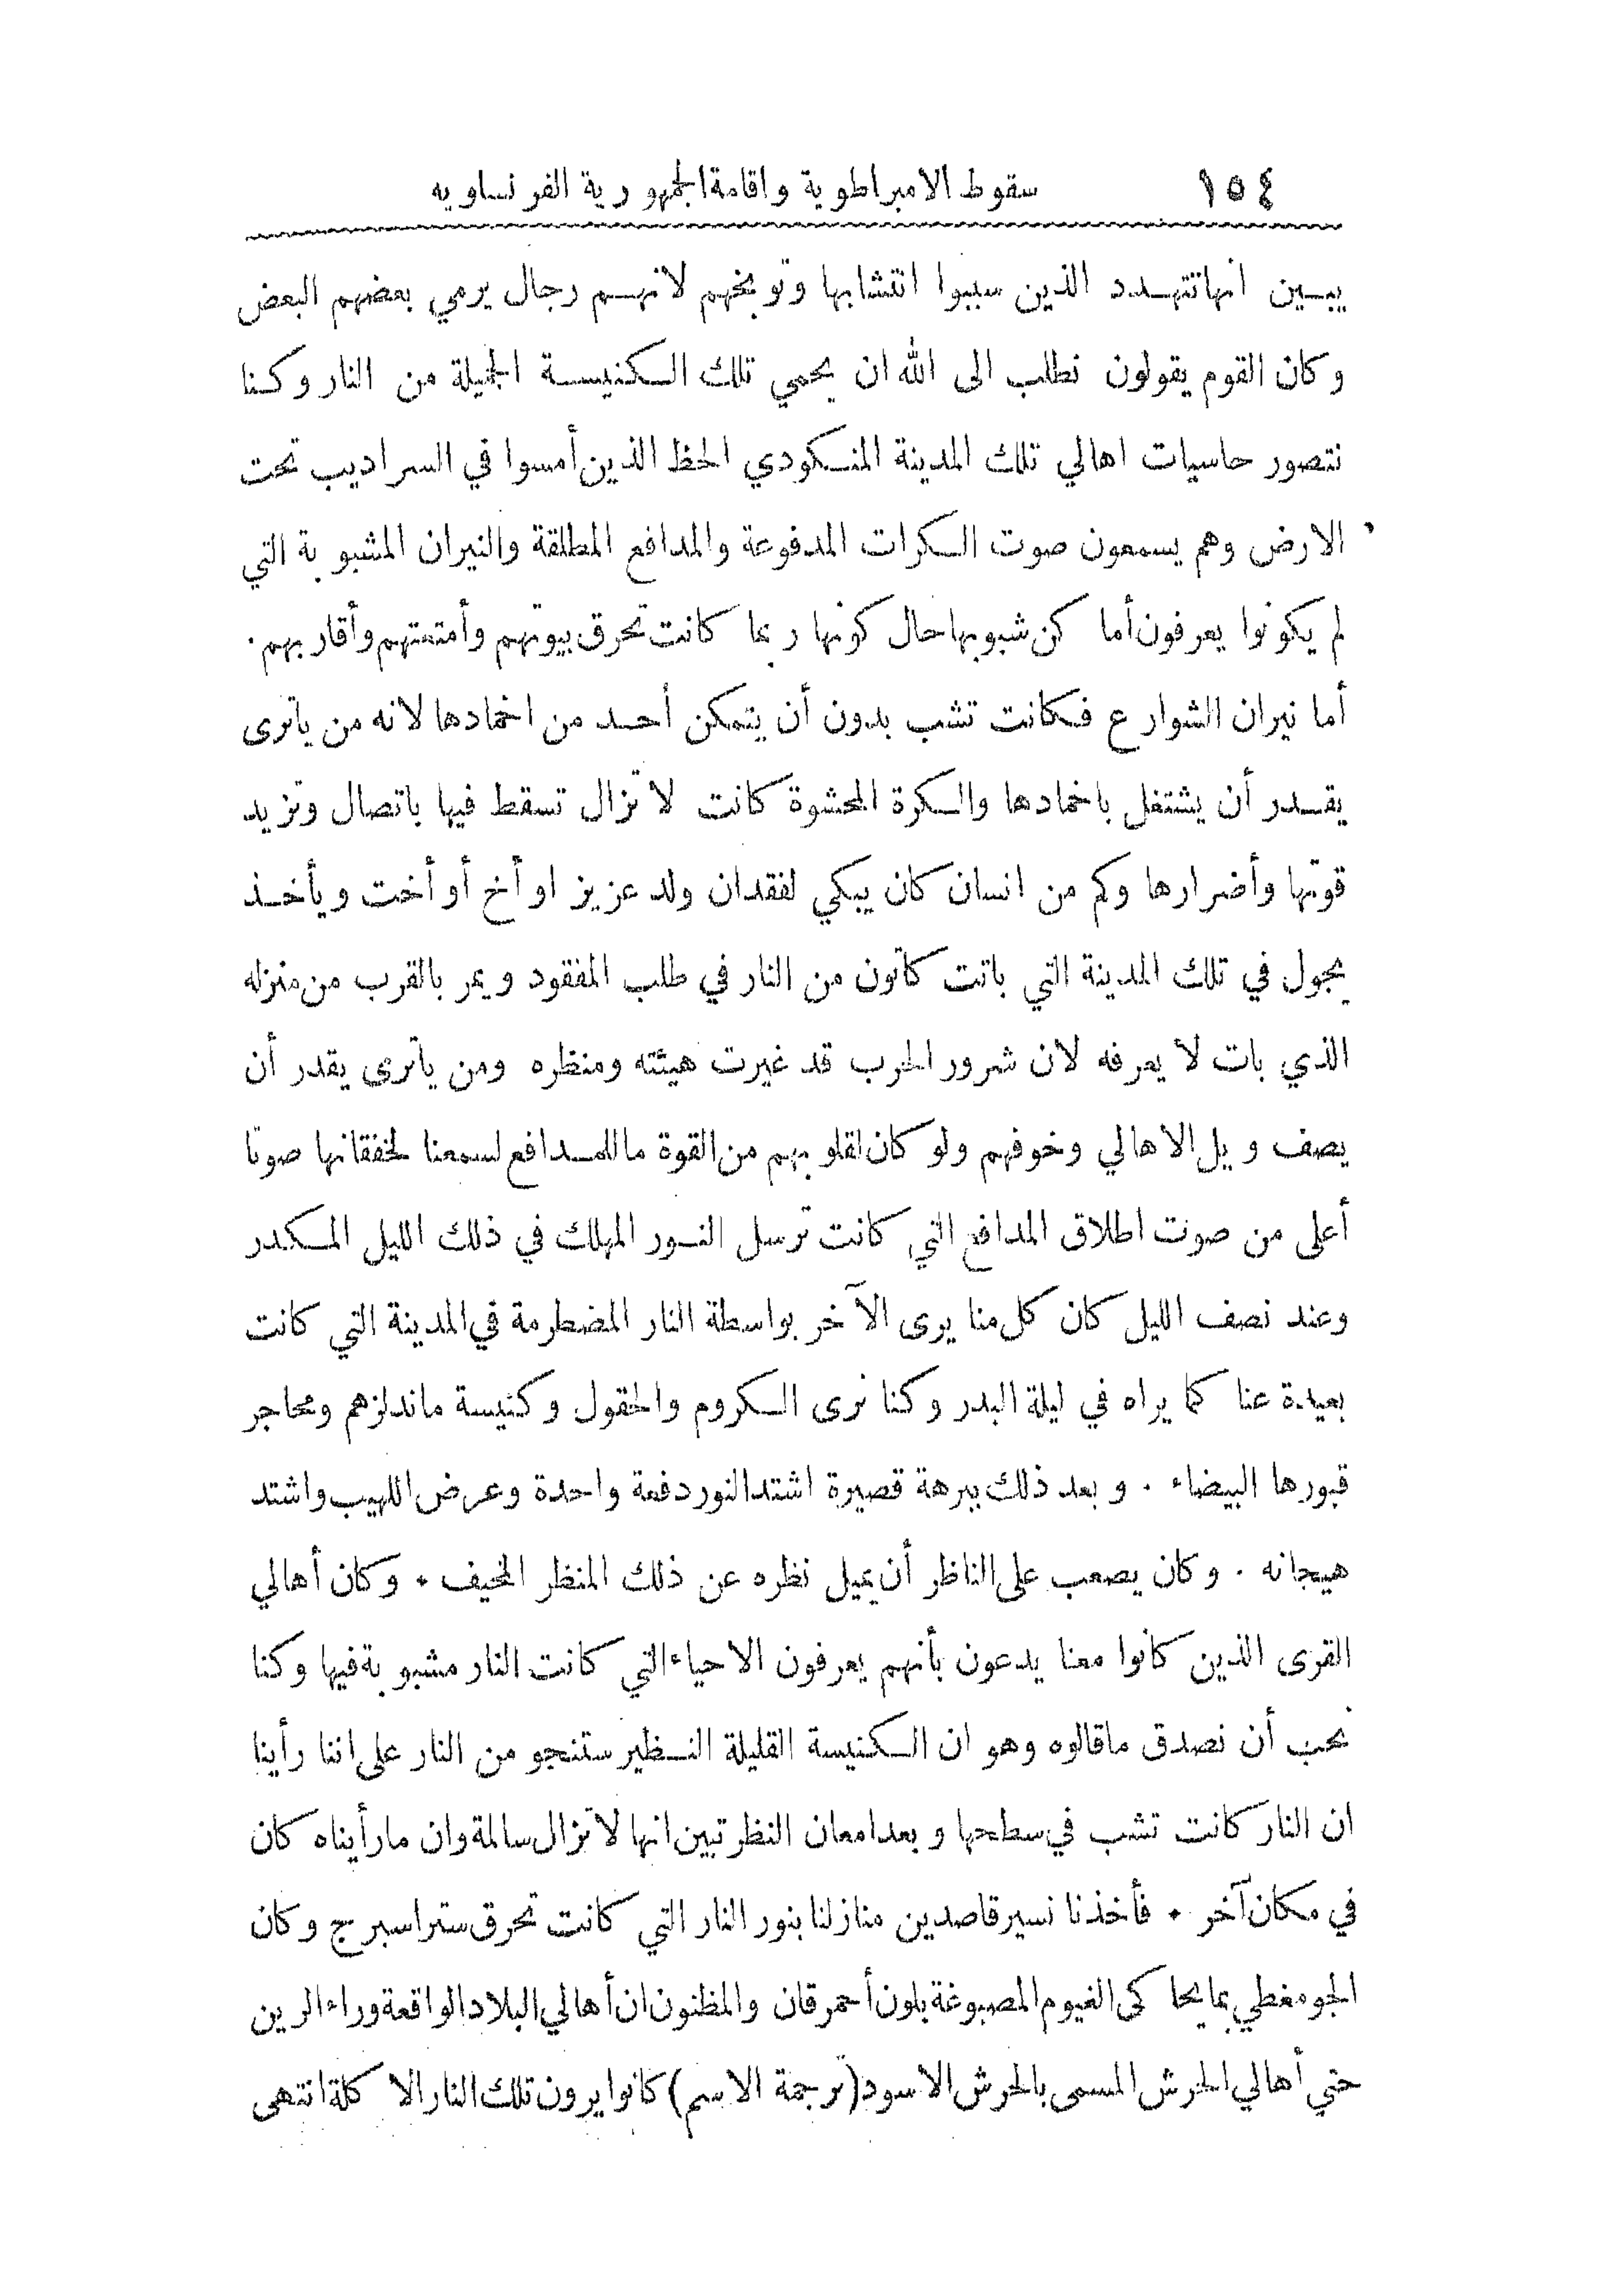 ١٥٤ سقوط الامبراطوية واقامة الجمهورية الفرنساويه
يبين انها تتهدد الذين سببوا انتشابها وتوبخهم لانهم رجال يرمي بعضهم البعض
وكان القوم يقولون نطلب الى الله ان يحمي تلك الكنيسة الجميلة من النار وكنا
نتصور حاسيات اهالي تلك المدينة المنكودي الحظ الذين أمسوا في السراديب تحت
الارض وهم يسمعون صوت الكرات المدفوعة والمدافع المطلقة والنيران المشبوبة التي
لم يكونوا يعرفون أماكن شبوبها حال كونها ربما كانت تحرق بيوتهم وأمتعتهم وأقاربهم.
أما نيران الشوارع فكانت تشب بدون أن يتمكن أحد من اخمادها لانه من ياترى
يقدر أن يشتغل باخمادها والكرة المحشوة كانت لا تزال تسقط فيها باتصال وتزيد
قوتها وأضرارها وكم من انسان كان يبكي لفقدان ولد عزيز او أخ أو أخت ويأخذ
يجول في تلك المدينة التي باتت كاتون من النار في طلب المفقود ويمر بالقرب من منزله
الذي بات لا يعرفه لان شرور الحرب قد غيرت هيئته ومنظره ومن ياترى يقدر أن
يصف ويل الاهالي وخوفهم ولو كان لقلوبهم من القوة ما للمدافع لسمعنا لخفقانها صوتا
أعلى من صوت اطلاق المدافع التي كانت ترسل النور المهلك في ذلك الليل المكدر
وعند نصف الليل كان كل منا يرى الآخر بواسطة النار المضطرمة في المدينة التي كانت
بعيدة عنا كما يراه في ليلة البدر وكنا نرى الكروم والحقول وكنيسة ماندلزهم ومحاجر
قبورها البيضاء . وبعد ذلك ببرهة قصيرة اشتد النور دفعة واحدة وعرض اللهيب واشتد
هيجانه . وكان يصعب على الناظر أن يميل نظره عن ذلك المنظر المخيف . وكان أهالي
القرى الذين كانوا معنا يدعون بأنهم يعرفون الاحياء التي كانت النار مشبوبة فيها وكنا
نحب أن نصدق ماقالوه وهو ان الكنيسة القليلة النظير ستنجو من النار على اننا رأينا
ان النار كانت تشب في سطحها وبعد امعان النظر تبين انها لا تزال سالمة وان مارأيناه كان
في مكان آخر . فأخذنا نسير قاصدين منازلنا بنور النار التي كانت تحرق ستراسبرج وكان
الجو مغطي بما يحاكى الغيوم المصبوغة بلون أحمر قان والمظنون ان أهالي البلاد الواقعة وراء الرين
حتي أهالي الحرش المسمى بالحرش الاسود (ترجمة الاسم) كانوا يرون تلك النار الاكلة انتهى